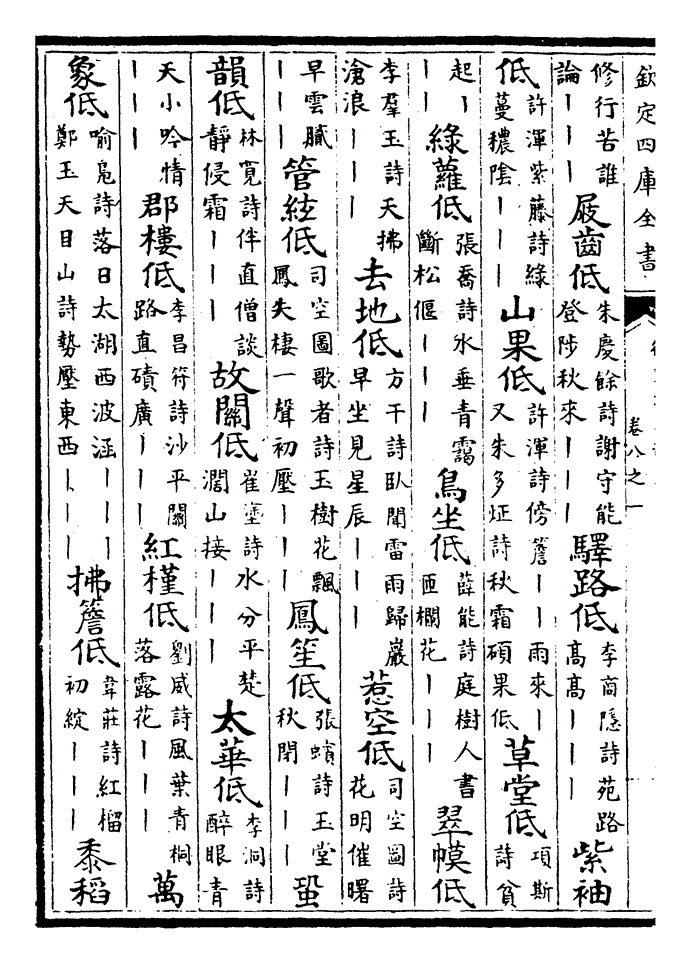 欽定四庫全書 卷八之一
修行苦誰論丨丨丨 屐齒低 朱慶餘詩謝守能登陟秋來丨丨丨 驛路低 李商隱詩苑路高高丨丨丨 紫袖
低 許渾紫藤詩綠蔓穠陰丨丨丨 山果低 許渾詩傍簷丨丨雨來丨又朱多炡詩秋霜碩果低 草堂低 項斯詩貧
起丨丨丨 綠蘿低 張喬詩水垂青靄斷松偃丨丨丨 鳥坐低 薛能詩庭樹人書匝欄花丨丨丨 翠幙低
李羣玉詩天拂滄浪丨丨丨 去地低 方干詩臥聞雷雨歸巖早坐見星辰丨丨丨 惹空低 司空圖詩花明催曙
早雲膩丨丨丨 管絃低 司空圖歌者詩玉樹花飄鳳失棲一聲初壓丨丨丨 鳳笙低 張蠙詩玉堂秋閉丨丨丨 蛩
韻低 林寛詩伴直僧談靜侵霜丨丨丨 故關低 崔塗詩水分平楚濶山接丨丨丨 太華低 李洞詩醉眼青
天小吟情丨丨丨 郡樓低 李昌符詩沙平關路直磧廣丨丨丨 紅槿低 劉威詩風葉青桐落露花丨丨丨 萬
象低 喻鳧詩落日太湖西波涵丨丨丨鄭玉天目山詩勢壓東西丨丨丨 拂簷低 韋莊詩紅榴初綻丨丨丨 黍稻